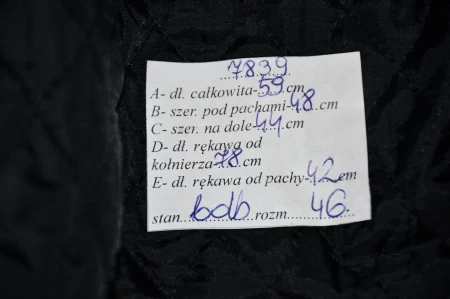 7839
A- dł. całkowita-59.cm
B- szer. pod pachami-48cm
C- szer. na dole-44.cm
D- dł. rękawa od
kołnierza-78.cm
E- dł. rękawa od pachy-42cm
stan...bdb...rozm......46...